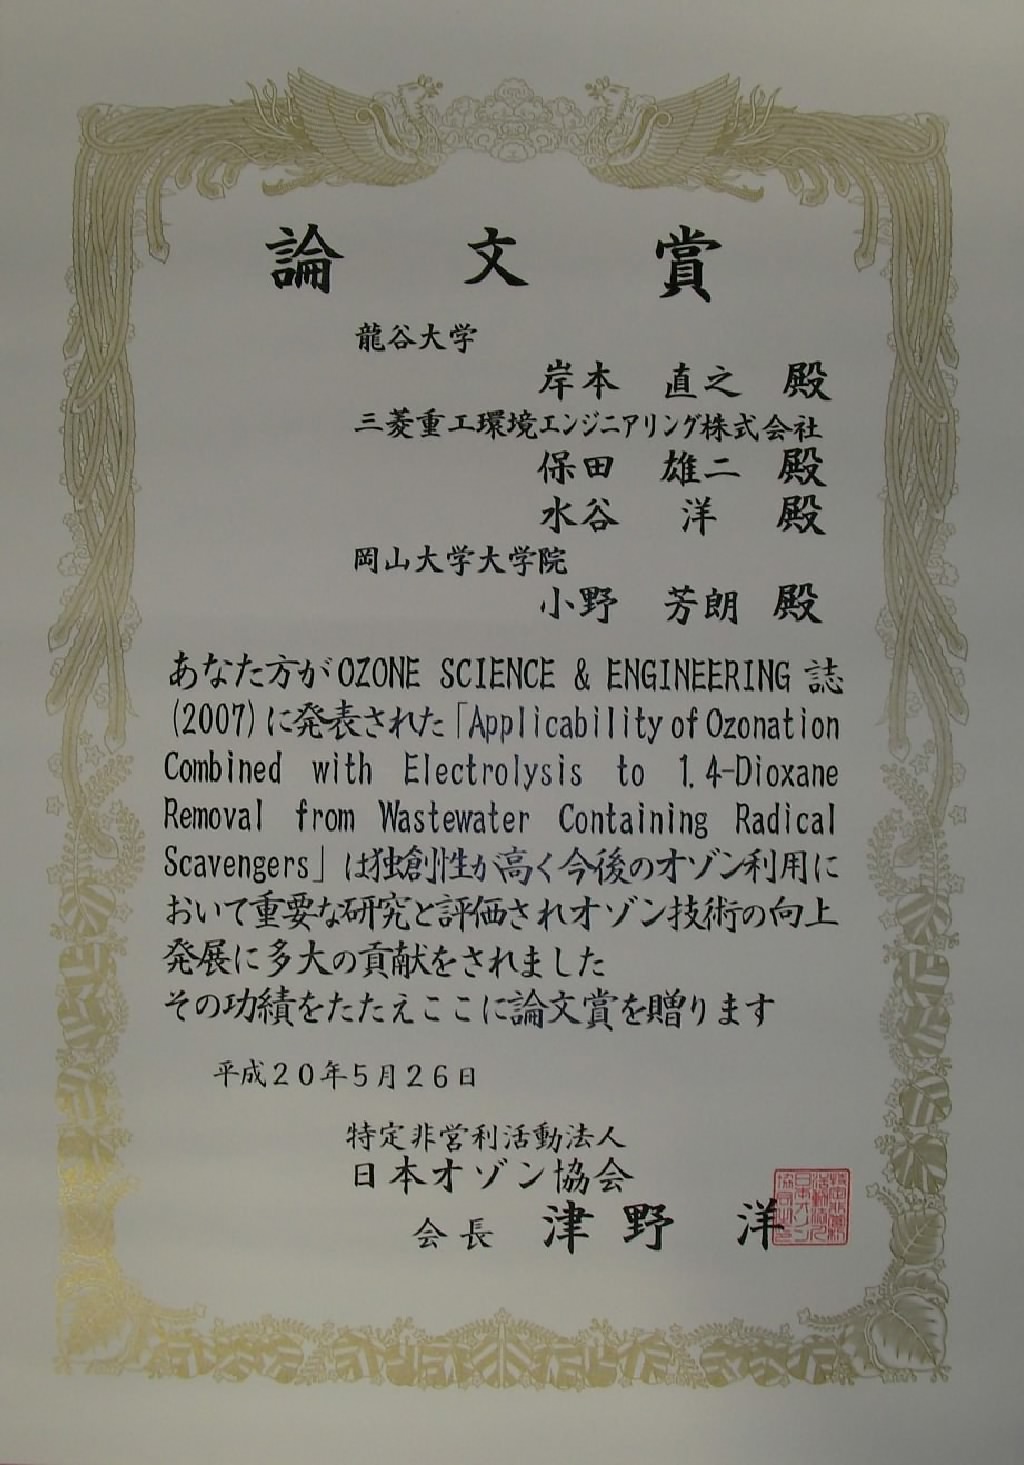 論文賞
龍谷大学
岸本 直之 殿
三菱重工環境エンジニアリング株式会社
保田 雄二 殿
水谷 洋 殿
岡山大学大学院
小野 芳朗 殿
あなた方がOZONE SCIENCE & ENGINEERING 誌
(2007)に発表された「Applicability of Ozonation
Combined with Electrolysis to 1.4-Dioxane
Removal from Wastewater Containing Radical
Scavengers」は独創性が高く今後のオゾン利用に
おいて重要な研究と評価されオゾン技術の向上
発展に多大の貢献をされました
その功績をたたえここに論文賞を贈ります
平成20年5月26日
特定非営利活動法人
日本オゾン協会
会長 津野 洋